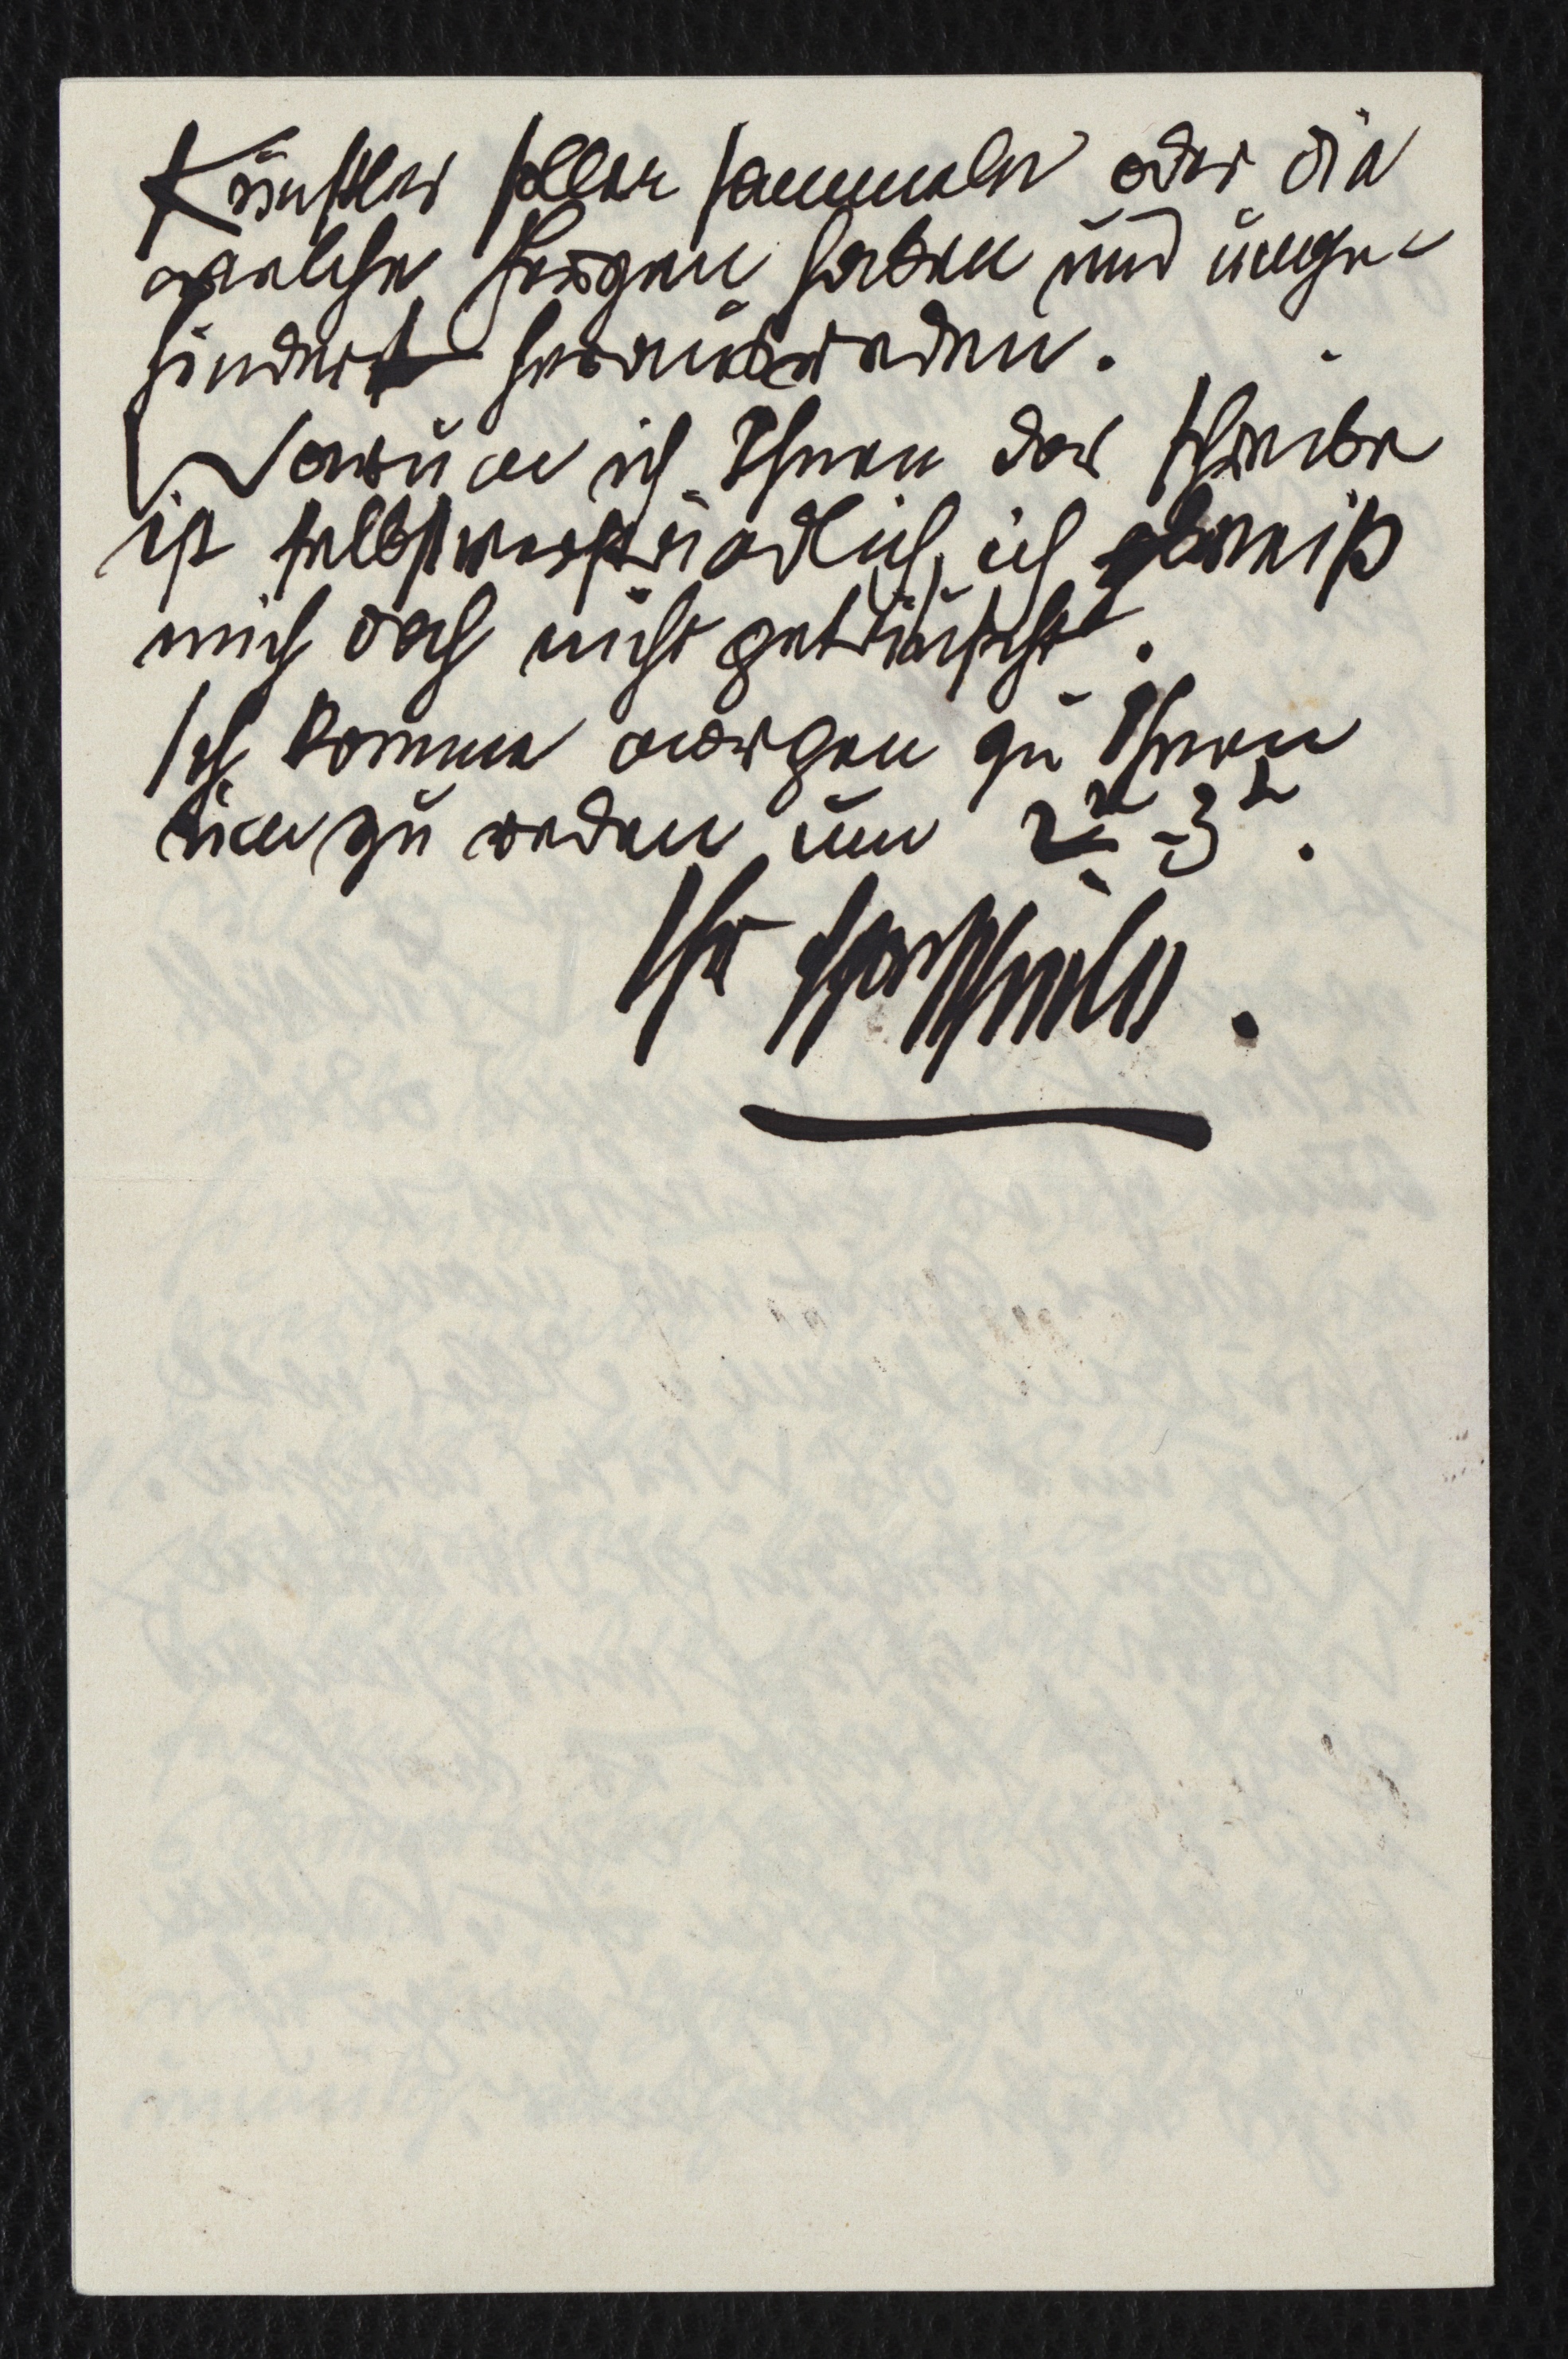 Künstler sollen sammeln oder die
welche Sorgen haben und unge-
hindert herausreden.
Warum ich Ihnen das schreibe
ist selbstverständlich, ich weiß
mich doch nicht getäuscht.
Ich komme morgen zu Ihnen
um zu reden um 2h-3h.
Ihr